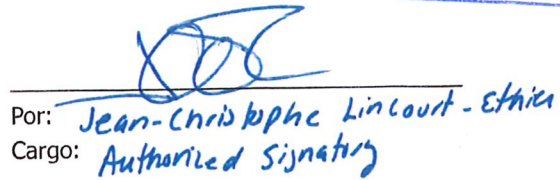 Por: Jean-Christophe Lincourt-Ethier
Cargo: Authorized Signatory